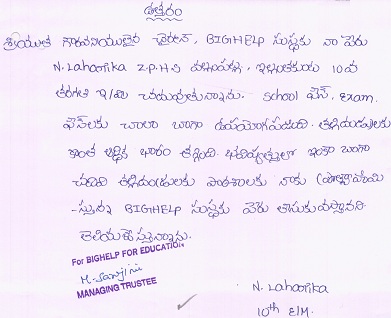 ఉత్తరం
శ్రీయుత గౌరవనీయులైన చైర్మన్, BIGHELP సంస్థకు నా పేరు
N. Lahorika Z.P.H.S ఇబ్రహీంపట్నం 10వ
తరగతి E/M చదువుతున్నాను. School ఫీజ్, Exam
ఫీజ్‌లకు చాలా బాగా ఉపయోగపడింది. తల్లిదండ్రులకు
కొంత ఆర్థిక భారం తగ్గింది. భవిష్యత్తులో ఇంకా బాగా
చదివి తల్లిదండ్రులకు పాఠశాలకు నాకు ప్రోత్సాహమి
-స్తున్న BIGHELP సంస్థకు పేరు తీసుకువస్తానని
తెలియజేస్తున్నాను.
For BIGHELP FOR EDUCATION
M. Sanjini
MANAGING TRUSTEE
N. Lahorika
10th E/M.